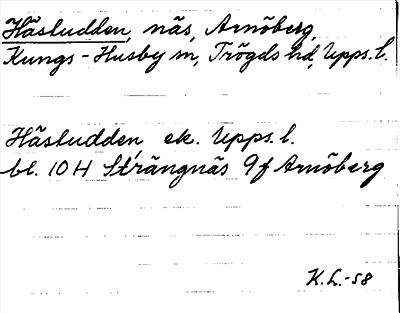 Hästudden, näs, Arnöberg,
Kungs-Husby sn, Trögds hd, Upps. l.
Hästudden, ek. Upps. l.
bl. 10 H Strängnäs 9f Arnöberg
K.L.-58